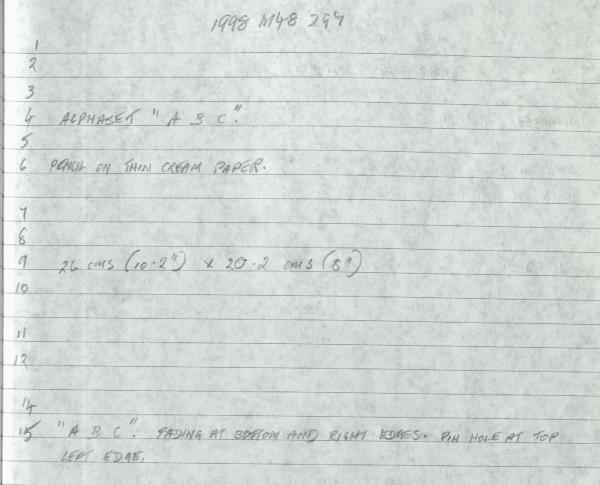 1998 M48 294
1
2
3
4 ALPHABET "A B C".
5
6 PENCIL ON THIN CREAM PAPER.
7
8
9 26 cms (10.2") x 20.2 cms (8")
10
11
12
14
15 "A B C". FADING AT BOTTOM AND RIGHT EDGES. PIN HOLE AT TOP
LEFT EDGE.